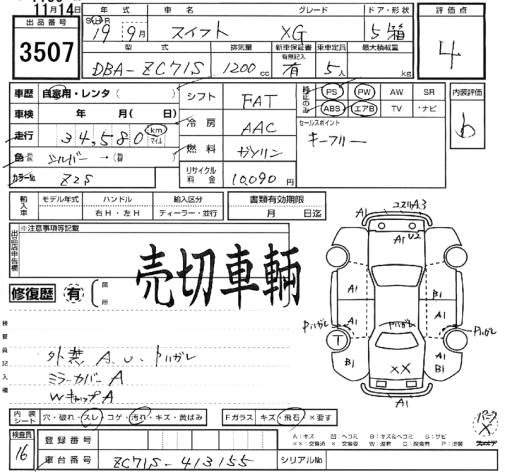 11月14日
出品番号
3507
年式 グレード ドア・形状
19年9月 スイフト XG 5 箱
型式 排気量 新車保証書 有無記入 乗車定員 最大積載量
DBA-ZC71S 1200cc 有 5人 kg
評価点
4
車歴 自家用・レンタ(
車検 年 月( )
走行 34,580 km マイル
色 シルバー →(
カラー№ Z2S
シフト FAT
冷房 AAC
燃料 ガソリン
リサイクル料金 10,090円
PS PW AW SR
ABS エアB TV ナビ
セールスポイント
キーフリー
内装評価
b
輸入車 モデル年式 ハンドル 輸入区分
年 右H・左H ディーラー・並行
書類有効期限
月 日迄
出品店申告欄
※注意事項等記載
売切車輌
修復歴 有
箇所
検査員記入欄
外無 A、U、ハガレ
ミラーカバー A
WキャップA
コスリA3
A1 U2
A1 A1 B1
A1 A1 B1
ハガレ ハガレ ハガレ
B1 T B1
XX
A1
内装シート 穴・破れ・スレ コゲ・汚れ・キズ・黄ばみ
Fガラス キズ・飛石 X要す
検査員
16
登録番号
車台番号 ZC71S-413155
シリアル№
A:キズ U:ヘコミ B:キズ&ヘコミ S:サビ